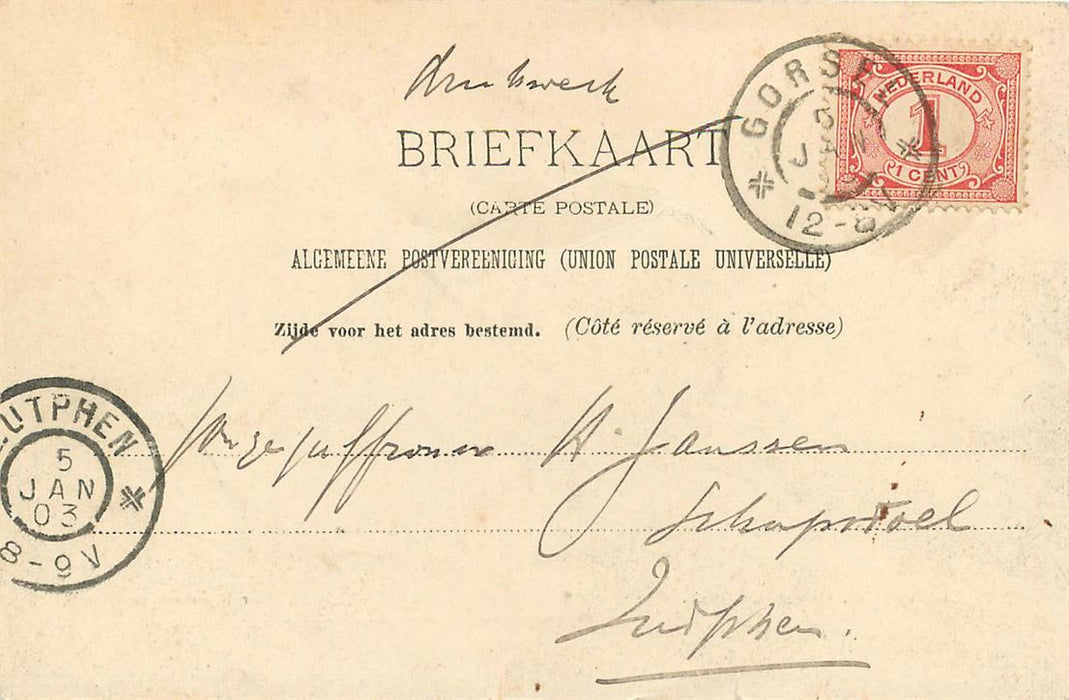 drukwerk
BRIEFKAART
(CARTE POSTALE)
ALGEMEENE POSTVEREENIGING (UNION POSTALE UNIVERSELLE)
Zijde voor het adres bestemd. (Côté réservé à l'adresse)
GORSSEL
JAN
12-8V
NEDERLAND
1
1 CENT
ZUTPHEN
5
JAN
03
8-9V
Jongejuffrouw H. Janssen
Schupstoel
Zutphen.